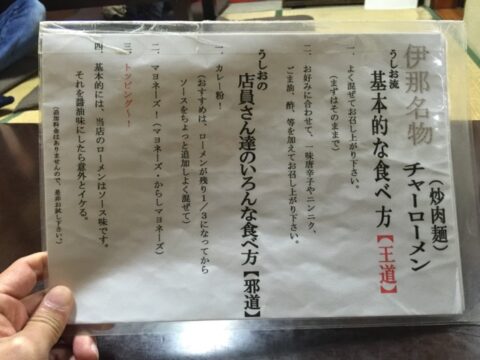 伊那名物
(炒肉麺)
チャーローメン
うしお流
基本的な食べ方【王道】
一、よく混ぜてお召し上がり下さい。
(まずはそのままで)
二、お好みに合わせて、一味唐辛子やニンニク、
ごま油、酢、等を加えてお召し上がり下さい。
うしおの
店員さん達のいろんな食べ方【邪道】
一、カレー粉!
(おすすめは、ローメンが残り1/3になってから
ソースをちょっと追加しよく混ぜて)
二、マヨネーズ!(マヨネーズ・からしマヨネーズ)
三、トッピング~!
四、基本的には、当店のローメンはソース味です。
それを醤油味にしたら意外とイケる。
(追加料金はありませんので、是非お試し下さい。)